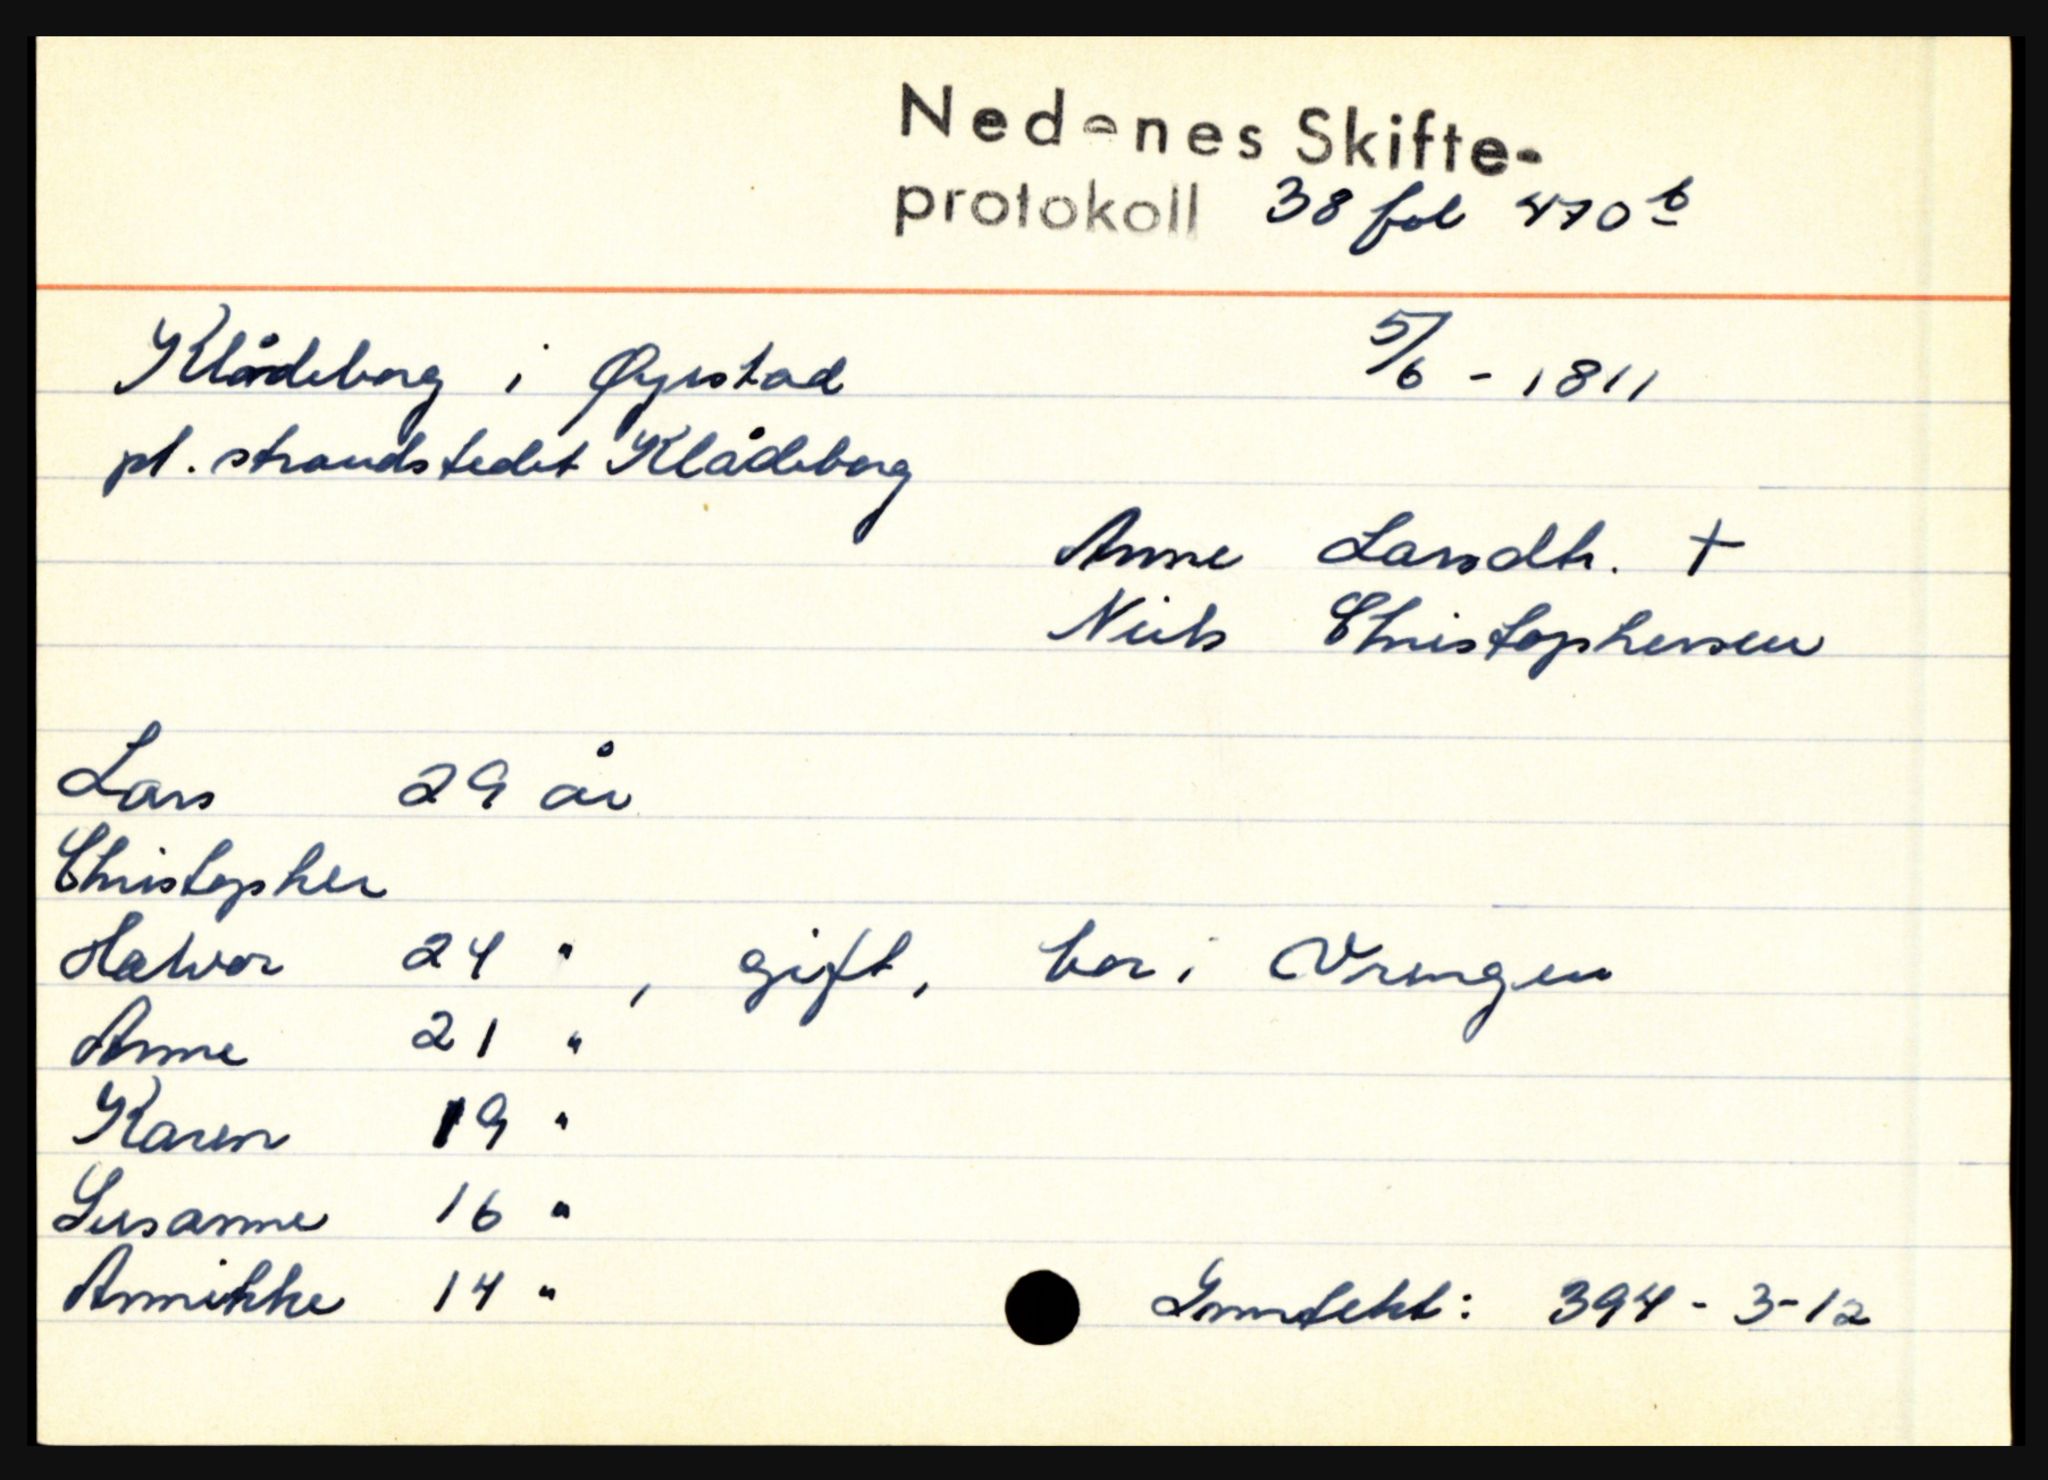 Nedenes Skifte-
protokoll 38 fol 470 b
Klådeborg i Øyestad 5/6 - 1811
pl. strandstedet Klådeborg
Anne Larsdtr. †
Niels Christophersen
Lars 29 år
Christopher
Halvor 24 " , gift, bor i Vrengen
Anne 21 "
Karen 19 "
Susanne 16 "
Annikke 14 " Inntekt: 394 - 3 - 12